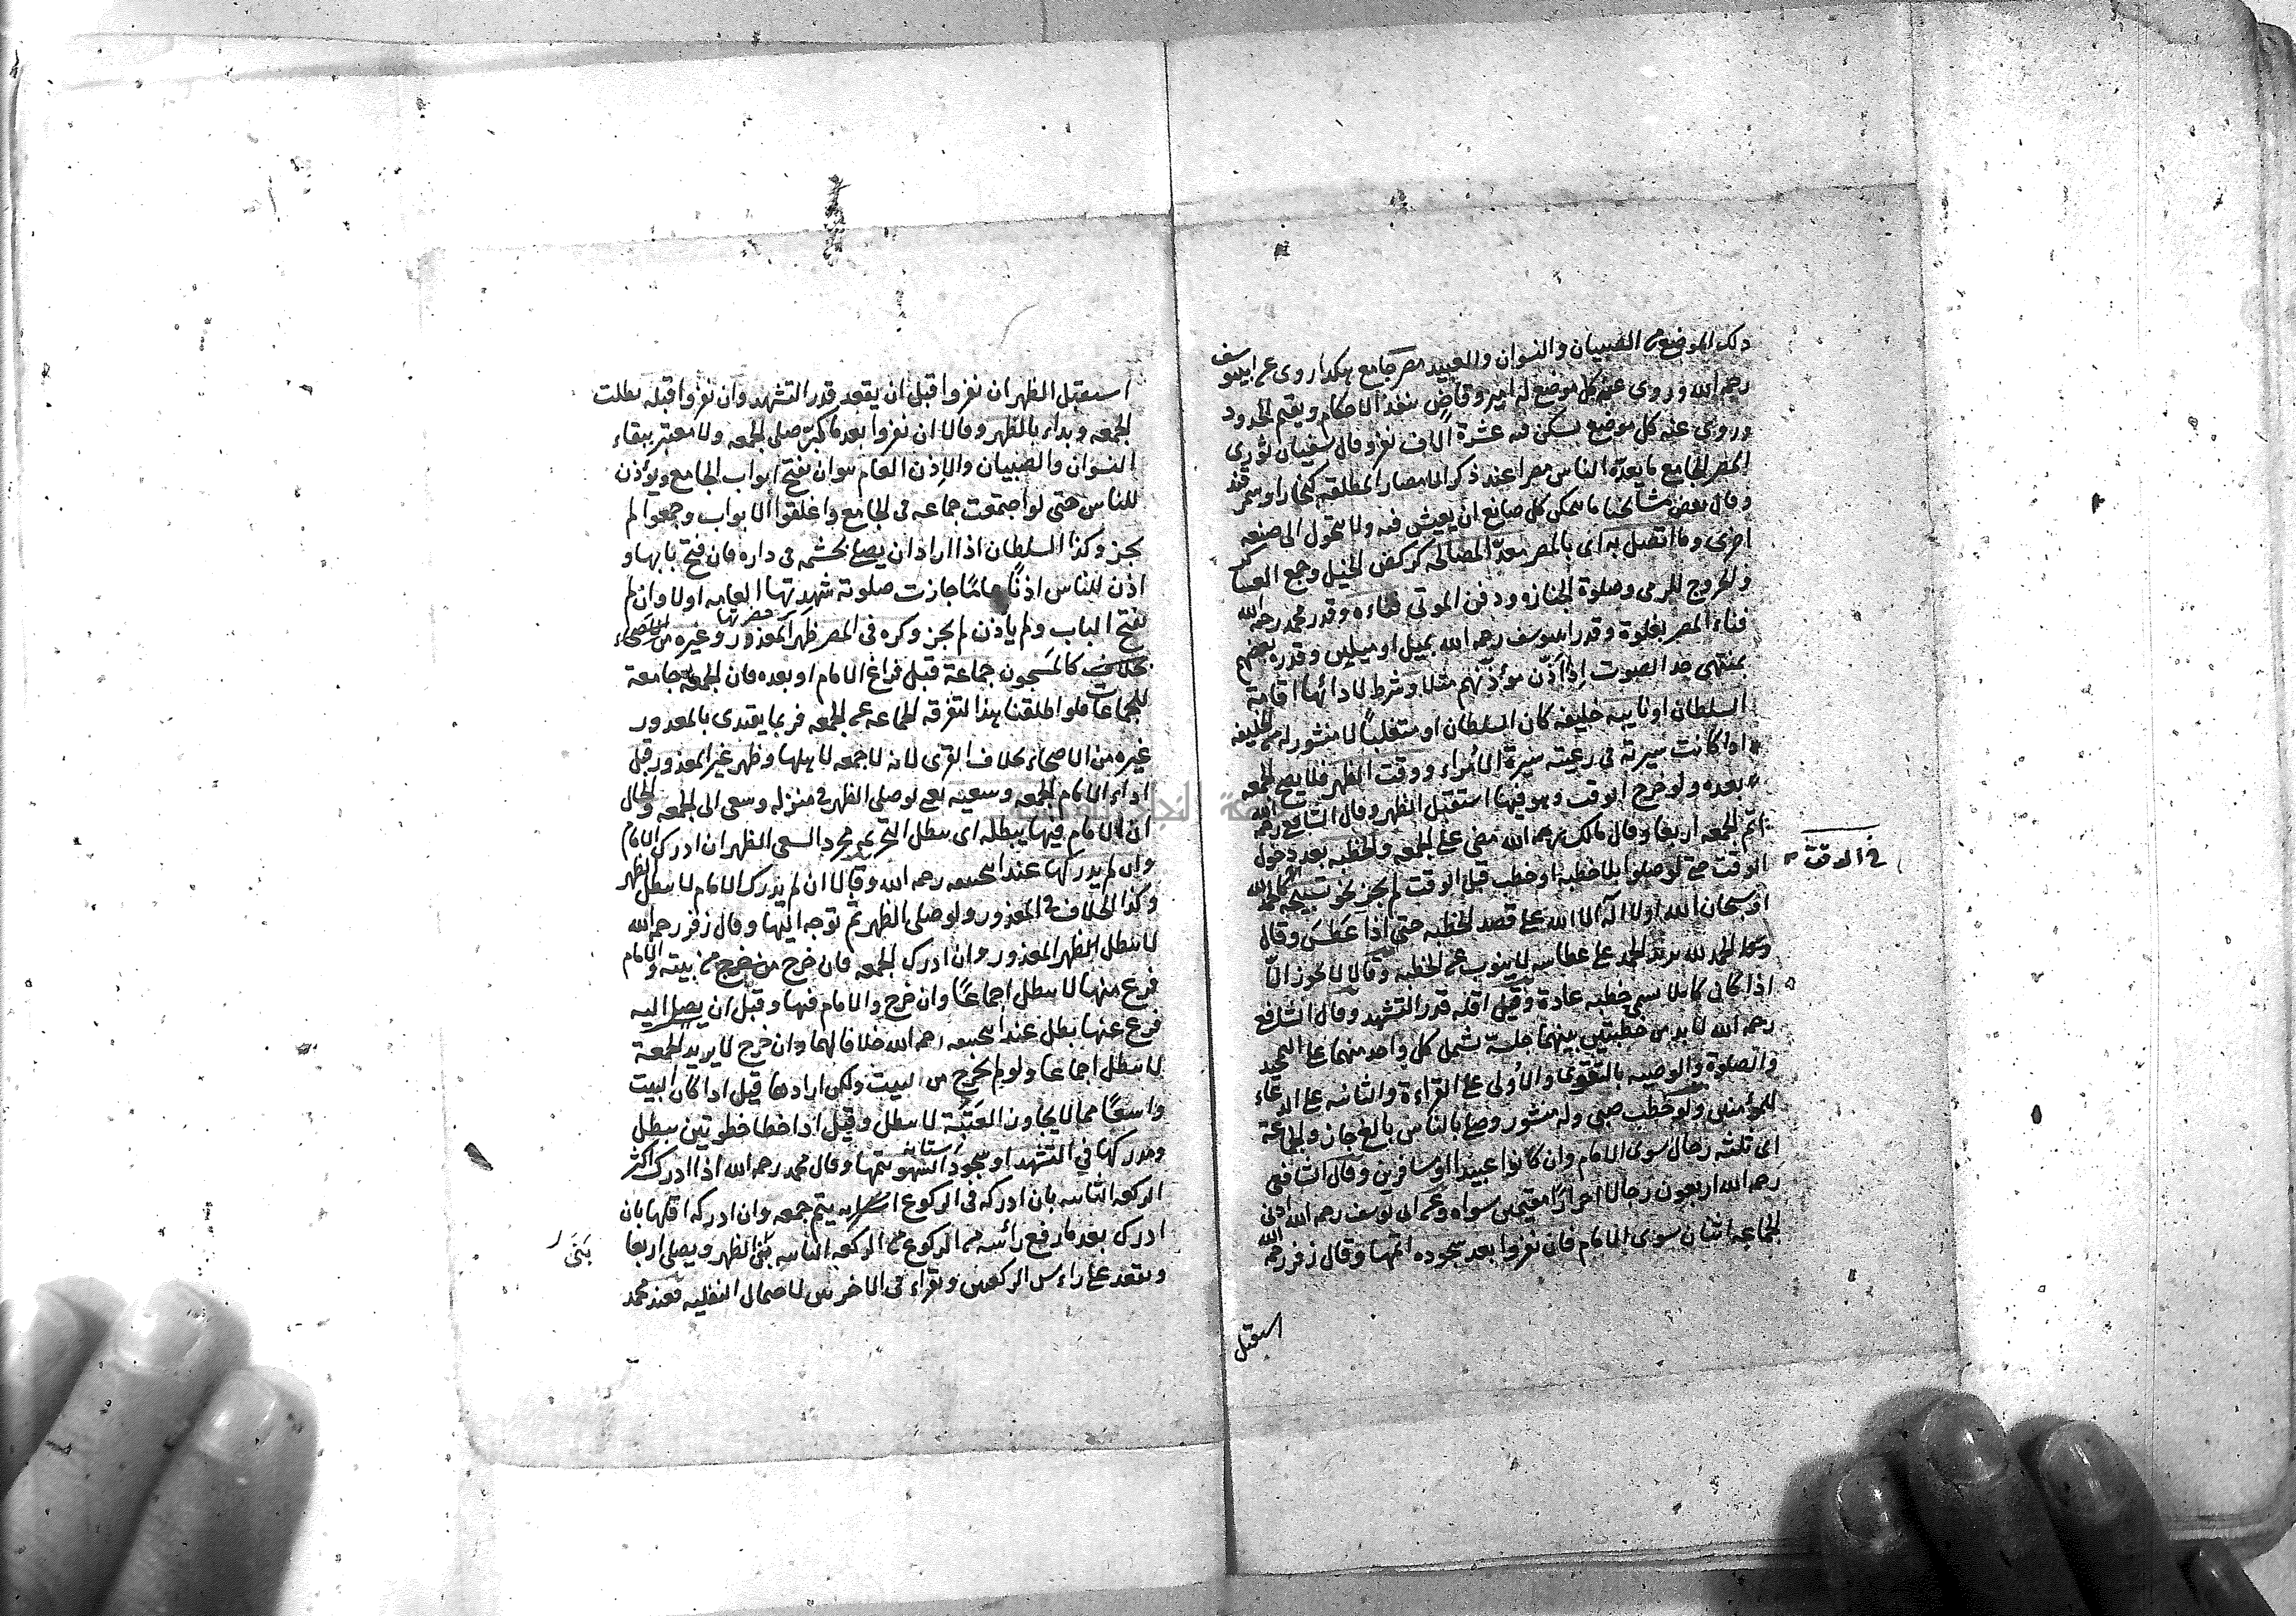 ذلك الموضع من الصبيان والنسوان والعبيد مصر جامع هكذا روى عن ابي يوسف
رحمه الله وروى عنه كل موضع له امير وقاض ينفذ الاحكام ويقيم الحدود
وروى عنه كل موضع يسكن فيه عشرة الاف نفر وقال سفيان الثوري
المصر الجامع ما يعده الناس مصرا عند ذكر الامصار المطلقة كبخارا وسمرقند
وقال بعض مشايخنا ما يتمكن كل صانع ان يعيش فيه ولا يتحول الى صنعه
اخرى وما اتصل به اى بالمصر معدّ المصالحه كركض الخيل وجمع العساكر
والخروج للرمى وصلوة الجنازه ودفن الموتى فناءه وقدر محمد رحمه الله
فناء المصر بغلوة وقدر ابو يوسف رحمه الله بميل او ميلين وقدره بعضهم
بمنتهى حد الصوت اذا اذّن مؤذنهم مثلا وشرط لادائها اقامة
السلطان او نايبه خليفه كان السلطان او متغلبا لا منشور له من الخليفه
اذا كانت سيرته فى رعيته سيرة الامراء ووقت الظهر فلا يصح الجمعه
بعده ولو خرج الوقت وهو فيها استقبل الظهر وقال الشافعى رحمه الله
اتم الجمعه اربعا وقال مالك رحمه الله مضى على الجمعه والخطبه بعد دخول
فى الوقت
الوقت حتى لو صلوا بلا خطبه او خطب قبل الوقت لم يجز نحو تسبيحه كالحمد لله
او سبحان الله او لا اله الا الله على قصد الخطبه حتى اذا عطس وقال
الحمد لله يريد الحمد على عطاسه لا ينوب عن الخطبه وقالا لا يجوز الا
اذا كان كاملا يسمى خطبه عادة وقيل اقله قدر التشهد وقال الشافعى
رحمه الله لا بد من خطبتين بينهما جلسة تشمل كل واحد منهما على التحميد
والصلوة والوصيه بالتقوى والاولى على القراءة والثانيه على الدعاء
للمؤمنين ولو خطب صبى وله منشور وصلى بالناس بالغ جاز والجماعة
اى ثلثه رجال سوى الامام وان كانوا عبيدا او مسافرين وقال الشافعى
رحمه الله اربعون رجالا احرارا مقيمين سواه وعن ابى يوسف رحمه الله ادنى
الجماعه اثنان سوى الامام فان نفروا بعد سجوده اتمها وقال زفر رحمه الله
استقبل
استقبل الظهر ان نفروا قبل ان يقعد قدر التشهد وان نفروا قبله بطلت
الجمعه وبداء بالظهر وقالا ان نفروا بعد ما كبّر صلى الجمعه ولا معتبر ببقاء
النسوان والصبيان والاذن العام هو ان يفتح ابواب الجامع ويؤذن
للناس حتى لو اجتمعت جماعه فى الجامع واغلقوا الابواب وجمعوا لم
يجز وكذا السلطان اذا اراد ان يصلى بحشمه فى داره فان فتح بابها و
اذن للناس اذنًا عامًا جازت صلوته شهدتها العامه اولا وان لم
حضرتها
يفتح الباب ولم ياذن لم يجز وكره فى المصر ظهر المعذور وغيره
كالمسجون جماعة قبل فراغ الامام او بعده فان الجمعه جامعة
للجماعات فلو اطلقنا هذا لتفرقه الجماعه عن الجمعه فربما يقتدى بالمعذور
غيره من الاصحاء بخلاف القرى لانه لا جمعه لاهلها وظهر غير المعذور قبل
اداء الامام الجمعه وسعيه يعنى لو صلى الظهر فى منزله وسعى الى الجمعه والحال
ان الامام فيها يبطله اى يبطل التحريمه بمجرد السعى الظهر ان ادرك الامام
وان لم يدركها عند ابى حنيفه رحمه الله وقالا ان لم يدرك الامام لا يبطل الظهر
وكذا الخلاف فى المعذور ولو صلى الظهر ثم توجه اليها وقال زفر رحمه الله
لا يبطل الظهر المعذور وان ادرك الجمعه فان خرج من بيته والامام
فرغ منها لا يبطل اجماعًا وان خرج والامام فيها وقبل ان يصل اليه
فرغ عنها بطل عند ابى حنيفه رحمه الله خلافا لهما وان خرج لا يريد الجمعة
لا يبطل اجماعا ولو لم يخرج من البيت ولكن ارادها قيل اذا كان البيت
واسعًا فما لا يجاوز العتبة لا يبطل وقيل اذا خطا خطوتين يبطل
استانه
ومدركها فى التشهد او سجود السهو يتمها وقال محمد رحمه الله اذا ادرك اكثر
الركعه الثانيه بان ادركه فى الركوع يتم جمعه وان ادركه اقلها بان
ادرك بعد ما رفع رأسه من الركوع من الركعه الثانيه بنى الظهر ويصلى اربعا
بَنَى
ويقعد على راءس الركعتين ويقراء فى الاخريين لاحتمال النفليه فعند محمد